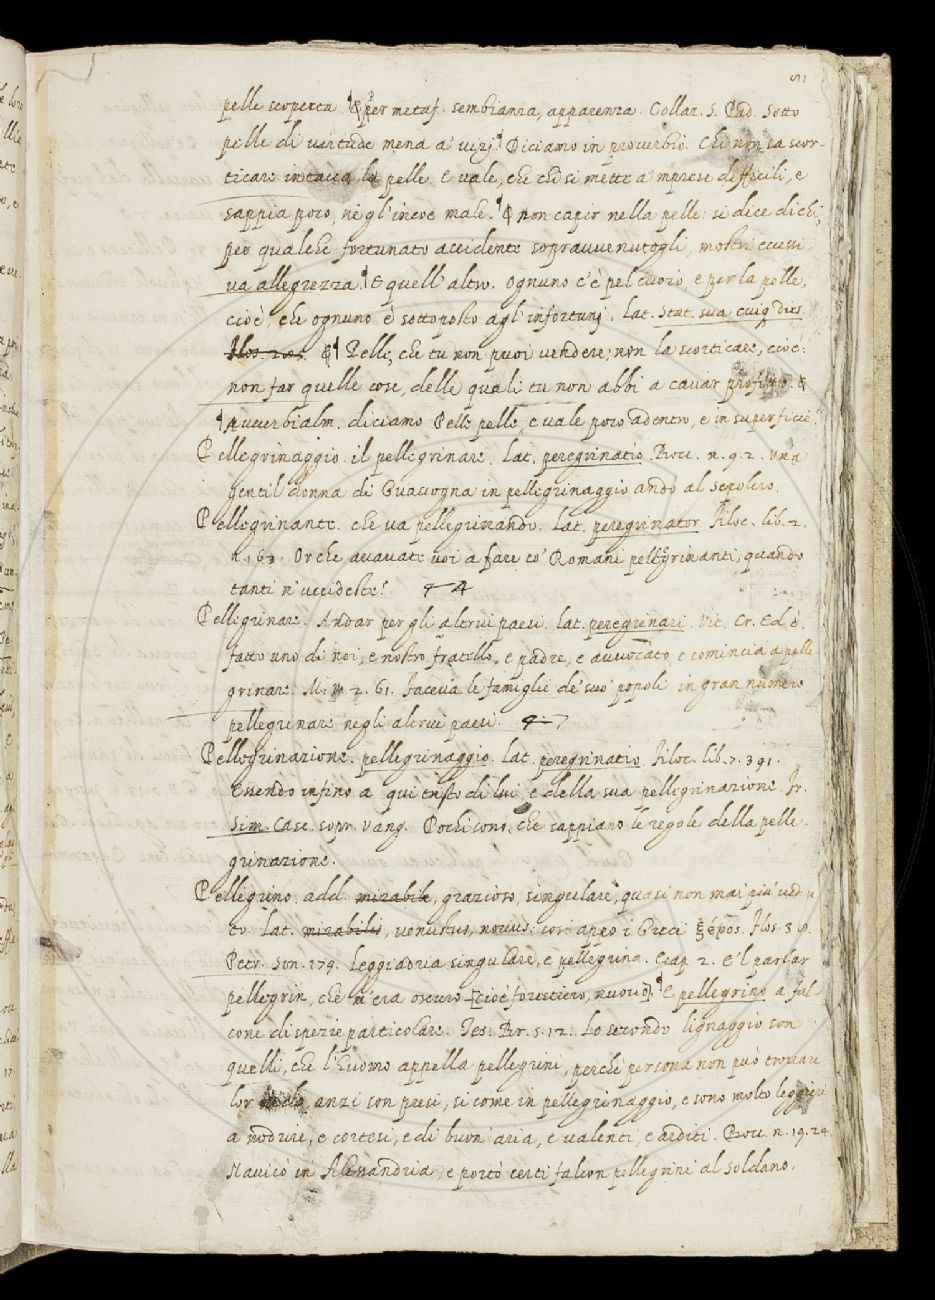 51
pelle scoperta. ¶ & per metaf. sembianza, apparenza. Collaz. S. Pad. Sotto
pelle di vertude mena a vizj. ¶ Diciamo in proverbio. Chi non sa scor-
ticare intacca la pelle. E vale, che chi si mette a 'mprese difficili, e
sappia poco, ne gl'incoe male. ¶ & non capir nella pelle: si dice di chi,
per qualche fortunato accidente sopravvenutogli, mostri eccessi-
va allegrezza. ¶ E quell'altro. Ognuno c'è pel cuoio, e per la pelle,
cioè, che ognuno è sottoposto agl'infortunj. lat. Stat. sua cuiq dies.
& ¶ Pelle, che tu non puoi vendere, non la scorticare, cioè:
non far quelle cose, delle quali tu non abbi a cavar profitto. &
¶ pruverbialm. diciamo Pelle pelle, e vale poco adentro, e in superficie.
Pellegrinaggio. il pellegrinare. lat. peregrinatio. Bocc. n. 9. 2. Una
gentil donna di Guascogna in pellegrinaggio andò al sepolcro.
Pellegrinante. che va pellegrinando. lat. peregrinator. Filoc. lib. 2.
n. 163. Or che avavate voi a fare co' Romani pellegrinanti, quando
tanti n'uccideste?
Pellegrinare. Andar per gli altrui paesi. lat. peregrinari. Vit. Cr. Ed è
fatto uno di noi, e nostro fratello, e padre, e avvocato, e comincia a pelle-
grinare. M. V. 2. 61. Faceva le famiglie de' suo' popoli in gran numero
pellegrinare negli altrui paesi.
Pellegrinazione. pellegrinaggio. lat. peregrinatio. Filoc. lib. 7. 391.
Essendo infino a qui tristo di lui, e della sua pellegrinazione. Fr.
Sim. Casc. sopr. vang. Pochi sono, che sappiano le regole della pelle-
grinazione.
Pellegrino. add. mirabile, grazioso, singulare, quasi non mai più vedu-
to. lat. mirabilis, venustus, novus: così appo i Greci ξένος. Filos. 3 9.
Petr. Son. 179. Leggiadria singulare, e pellegrina. E cap. 2. E 'l parlar
pellegrin, che m'era oscuro [cioè forestiero, nuovo]. ¶ E pellegrino a fal-
cone di spezie particolare. Tes. Br. 5. 12. Lo secondo lignaggio son
quelli, che l'huomo appella pellegrini, perchè persona non può trovare
lor anzi son presi, sì come in pellegrinaggio, e sono molto leggieri
a nodrire, e cortesi, e di buon'aria, e valenti, e arditi. Bocc. n. 19. 24.
Navicò in Alessandria, e portò certi falcon pellegrini al soldano.